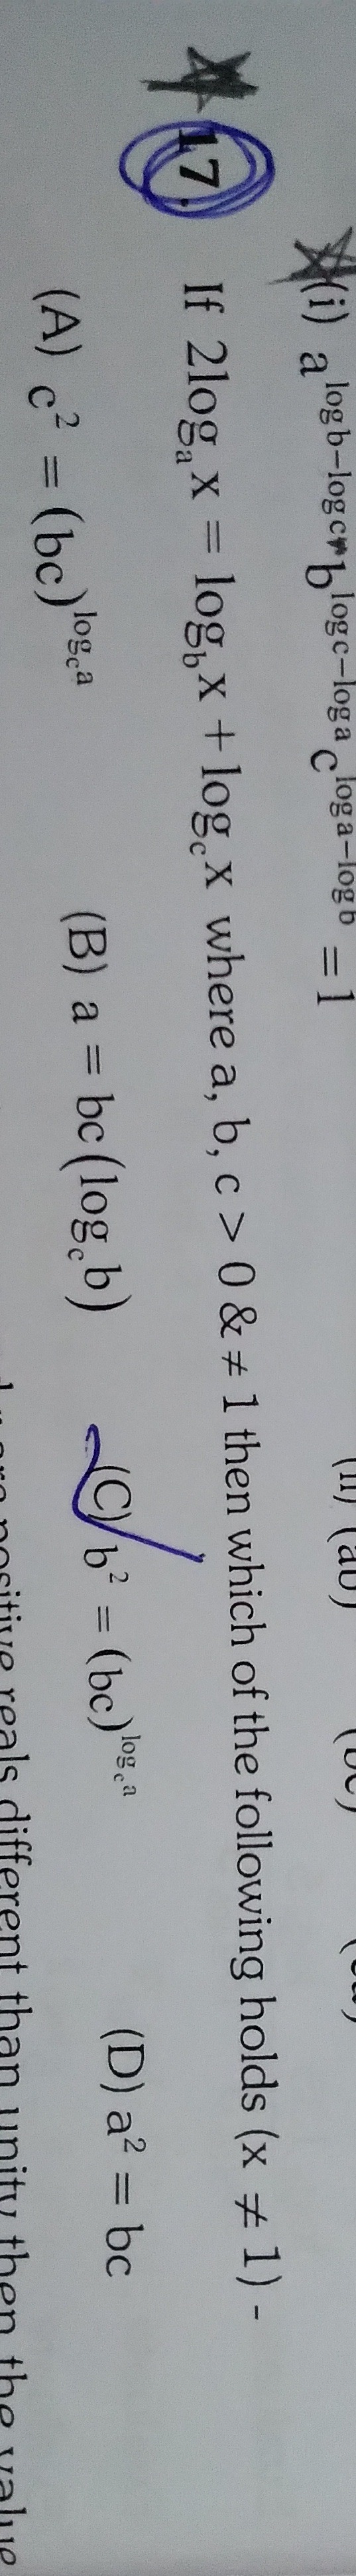 (i) a^{log b–log c} b^{log c–log a} c^{log a–log b} = 1
(ii) (ab)
17. If 2log_a x = log_b x + log_c x where a, b, c > 0 & ≠ 1 then which of the following holds (x ≠ 1) -
(A) c² = (bc)^{log_c a} (B) a = bc(log_c b) (C) b² = (bc)^{log_c a} (D) a² = bc
positive reals different than unity then the value